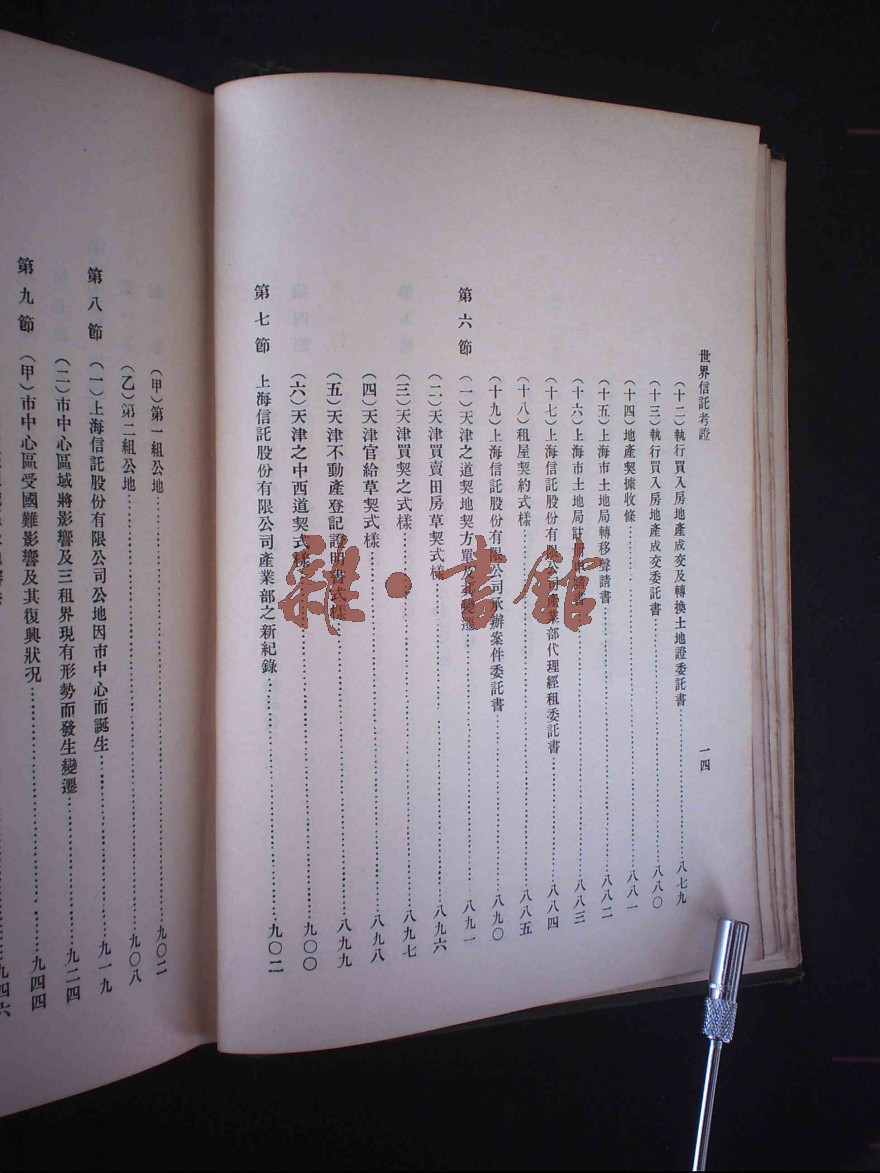 世界信託考證
一四
(十二)執行買入房地產成交及轉換土地證委託書……八七九
(十三)執行買入房地產成交委託書……八八〇
(十四)地產契據收條……八八一
(十五)上海市土地局轉移聲請書……八八二
(十六)上海市土地局註冊申請書……八八三
(十七)上海信託股份有限公司產業部代理經租委託書……八八四
(十八)租屋契約式樣……八八五
(十九)上海信託股份有限公司承辦案件委託書……八九〇
第六節 (一)天津之道契地契方單及其變遷……八九一
(二)天津買賣田房草契式樣……八九六
(三)天津買契之式樣……八九七
(四)天津官給草契式樣……八九八
(五)天津不動產登記證明書式樣……八九九
(六)天津之中西道契式樣……九〇〇
第七節 上海信託股份有限公司產業部之新紀錄……九〇二
(甲)第一組公地……九〇二
(乙)第二組公地……九〇八
第八節 (一)上海信託股份有限公司公地因市中心而誕生……九一九
(二)市中心區域將影響及三租界現有形勢而發生變遷……九二四
第九節 (甲)市中心區受國難影響及其復興狀況……九四四
九四六
雜·書館